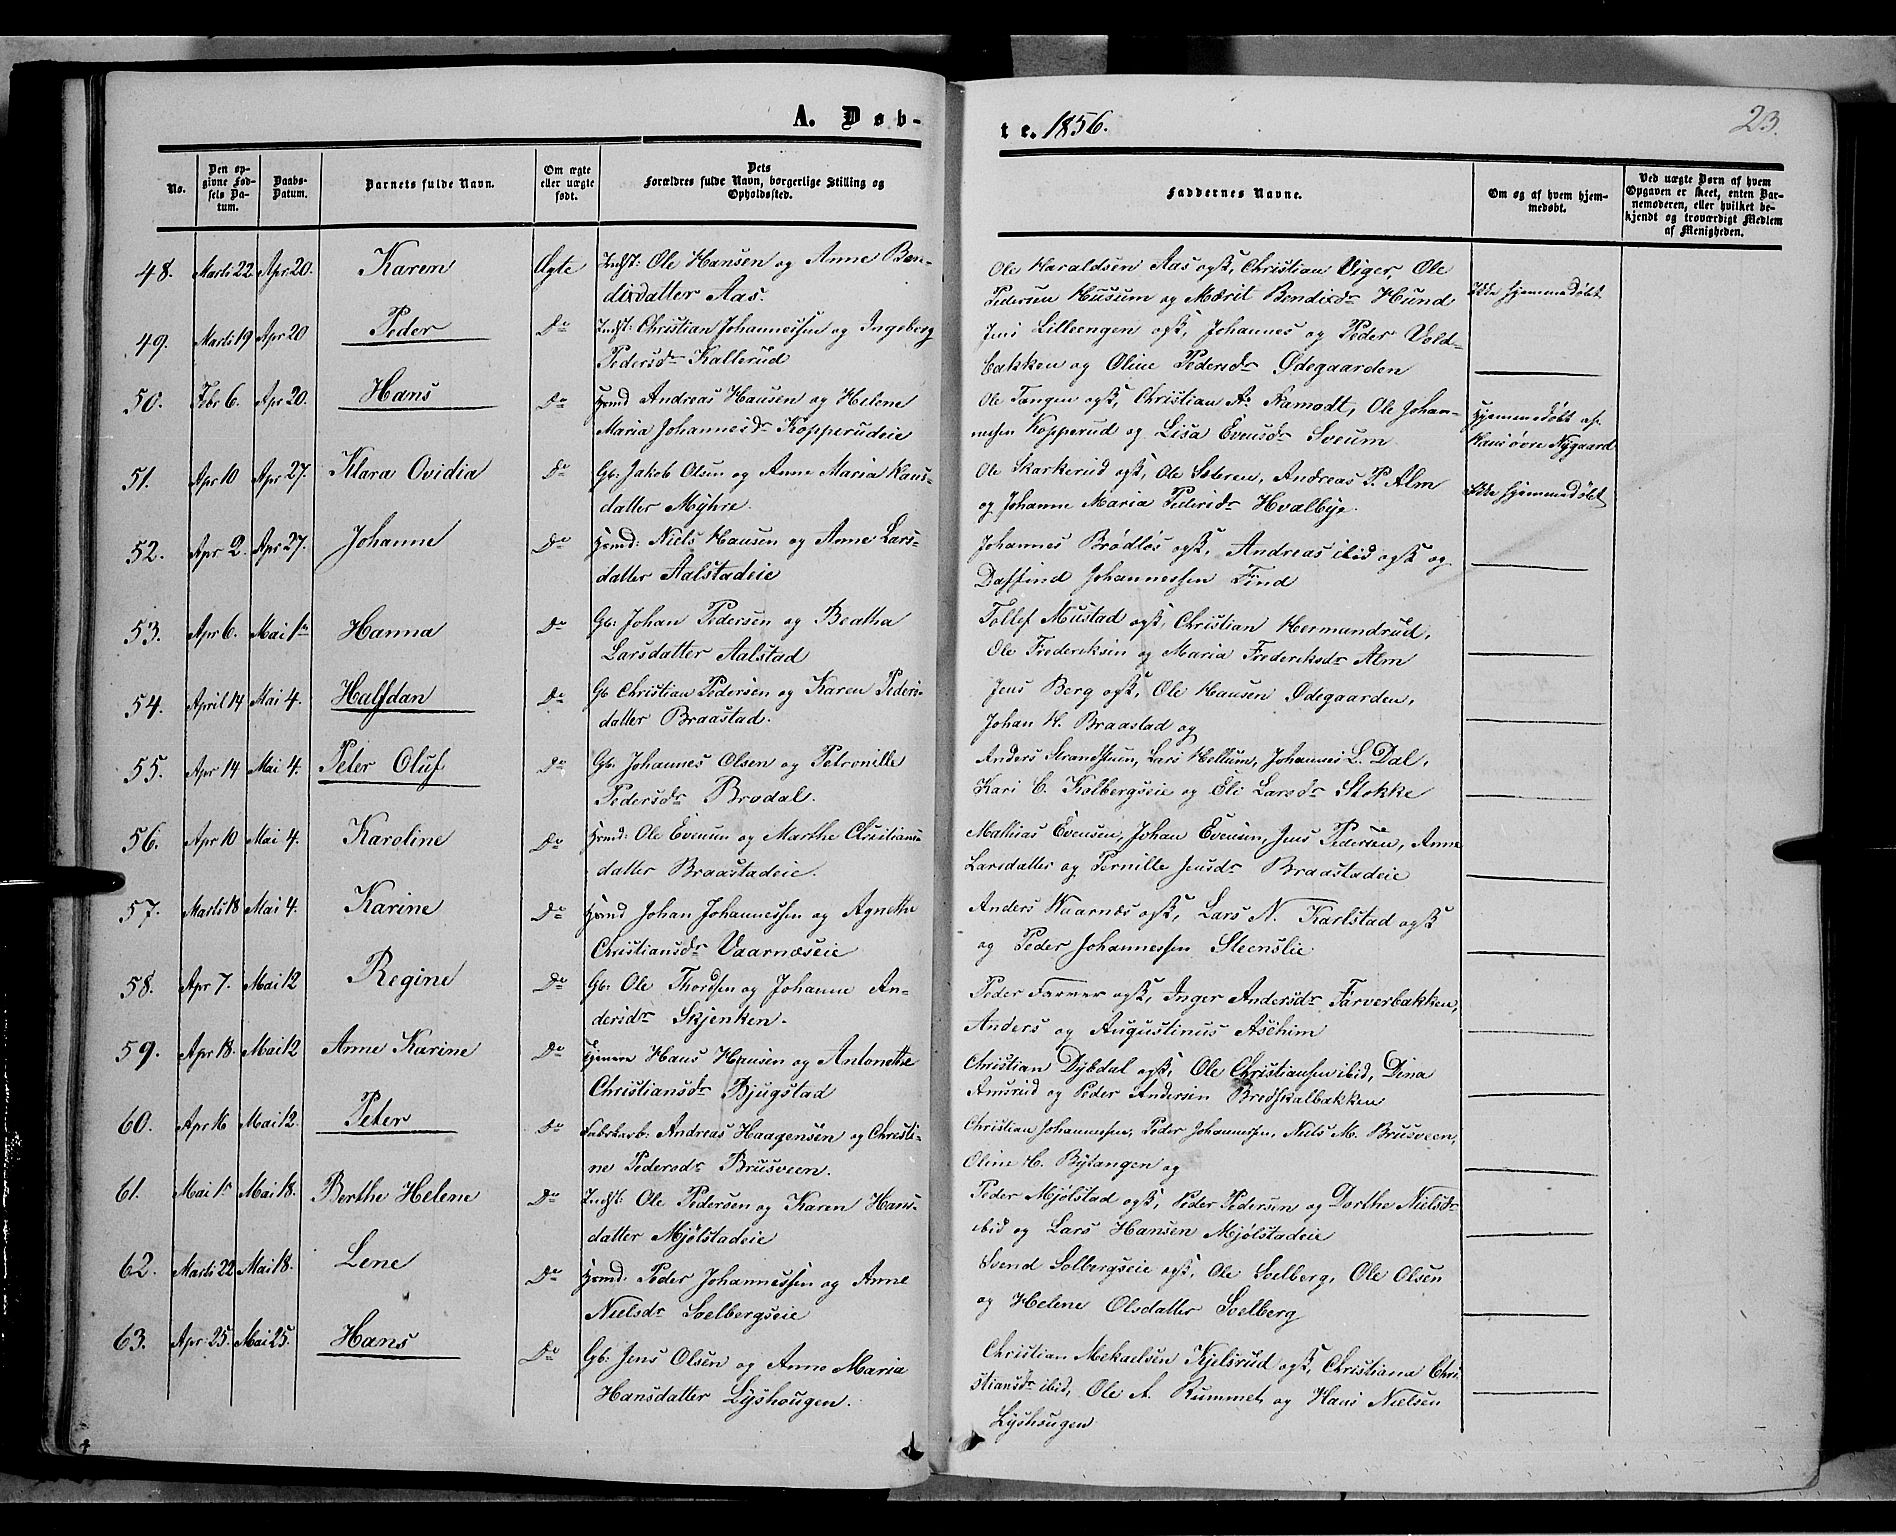 A. Døb-
te. 1856.
23.
No.
Den op-
givne Fød-
sels Da-
tum.
Daabs-
Datum.
Barnets fulde Navn.
Om ægte
eller uægte
født.
Dets
Forældres fulde Navn, borgerlige Stilling og
Opholdssted.
Faddernes Navne.
Om og af hvem hjem-
medøbt.
Ved uægte Børn af hvem
Opgaven er skeet, enten Bar-
nemoderen, eller hvilket be-
kjendt og troværdigt Medlem
af Menigheden.
48. Marts 22 Apr 20. Karen Ægte Indst: Ole Hansen og Anne Ben-
dixdatter Aas.
Ole Haraldsen Aas ogsk, Christian Viger, Ole
Pedersen Husum og Marit Bendixdr Hund
Ikke hjemmedøbt
49. Marts 19 Apr 20 Peder Do Indst: Christian Johannessen og Ingeborg
Pedersdr Kallerud
Jens Lilleengen ogsk, Johannes og Peder Vold-
bakken og Oline Pedersdr Ødegaarden
50. Febr 6. Apr 20. Hans Do Hmd Andreas Hansen og Helene
Maria Johannesdr Kopperudeie
Ole Tangen ogsk, Christian As Aamodt, Ole Johan-
nesen Kopperud og Lisa Evensdr Sveum
Hjemmedøbt af
Hans øvre Nygaard
51. Apr 10 Apr 27. Klara Ovidia Do Gb: Jakob Olsen og Anne Maria Hans-
datter Myhre.
Ole Skarkerud ogsk, Ole Sæbren, Andreas P. Alm
og Johanne Maria Pedersdr Hvalbye.
Ikke hjemmedøbt
52. Apr 2. Apr 27. Johanne Do Hmd: Niels Hansen og Anne Lars-
datter Aalstadeie
Johannes Brødløs ogsk, Andreas ibid ogsk og
Daffind Johannessen Find
53. Apr 6. Mai 1ste Hanna Do Gb: Johan Pedersen og Beatha
Larsdatter Aalstad
Tollef Mustad ogsk, Christian Hermundrud,
Ole Frederiksen og Maria Frederiksdr Alm
54. April 14 Mai 4. Halfdan Do Gb Christian Pedersen og Karen Peders-
datter Braastad.
Jens Berg ogsk, Ole Hansen Ødegaarden,
Johan H. Braastad og
55. Apr 14 Mai 4. Peter Oluf Do Gb: Johannes Olsen og Petronille
Pedersdr Brodal.
Anders Strandstuen, Lars Hellum, Johannes L. Dal,
Kari C. Kolbergseie og Eli Larsdr Stokke
56. Apr 10 Mai 4. Karoline Do Hmd: Ole Evensen og Marthe Christians
datter Braastadeie.
Mathias Evensen, Johan Evensen, Jens Pedersen, Anne
Larsdatter og Pernille Jensdr Braastadeie
57. Marts 18 Mai 4. Karine Do Hmd Johan Johannessen og Agnethe
Christiansdr Vaarnæseie
Anders Vaarnæs ogsk, Lars N. Karlstad ogsk
og Peder Johannessen Steenslie
58. Apr 7. Mai 12 Regine Do Gb: Ole Thordsen og Johanne An-
dersdr Skjenken.
Peder Farver ogsk, Inger Andersdr Farverbakken,
Anders og Augustinus Aschim
59. Apr 18. Mai 12 Anne Karine Do Tjenere Hans Hansen og Antonette
Christiansdr Bjugstad
Christian Dybdal ogsk, Ole Christiansen ibid, Dina
Amrud og Peder Andersen Bredskalbakken
60. Apr 16 Mai 12. Peter Do Fabrkarb: Andreas Haagensen og Christi-
ne Pedersdr Brusveen.
Christian Johannessen, Peder Johannessen, Niels M. Brusveen,
Oline H. Bytangen og
61. Mai 1ste Mai 18. Berthe Helene Do Indst: Ole Pedersen og Karen Hans-
datter Mjølstadeie
Peder Mjølstad ogsk, Peder Pedersen og Dorthe Nielsdr
ibid og Lars Hansen Mjølstadeie
62. Marts 22 Mai 18. Lene Do Hmd: Peder Johannessen og Anne
Nielsdr Soelbergseie
Svend Solbergseie ogsk, Ole Soelberg, Ole Olsen
og Helene Olsdatter Soelberg
63. Apr 25. Mai 25. Hans Do Gb: Jens Olsen og Anne Maria
Hansdatter Lyshougen.
Christian Mekaelsen Kjelsrud ogsk, Christiana Chri
stiansdr ibid, Ole A. Rummet og Hans Nielsen
Lyshougen